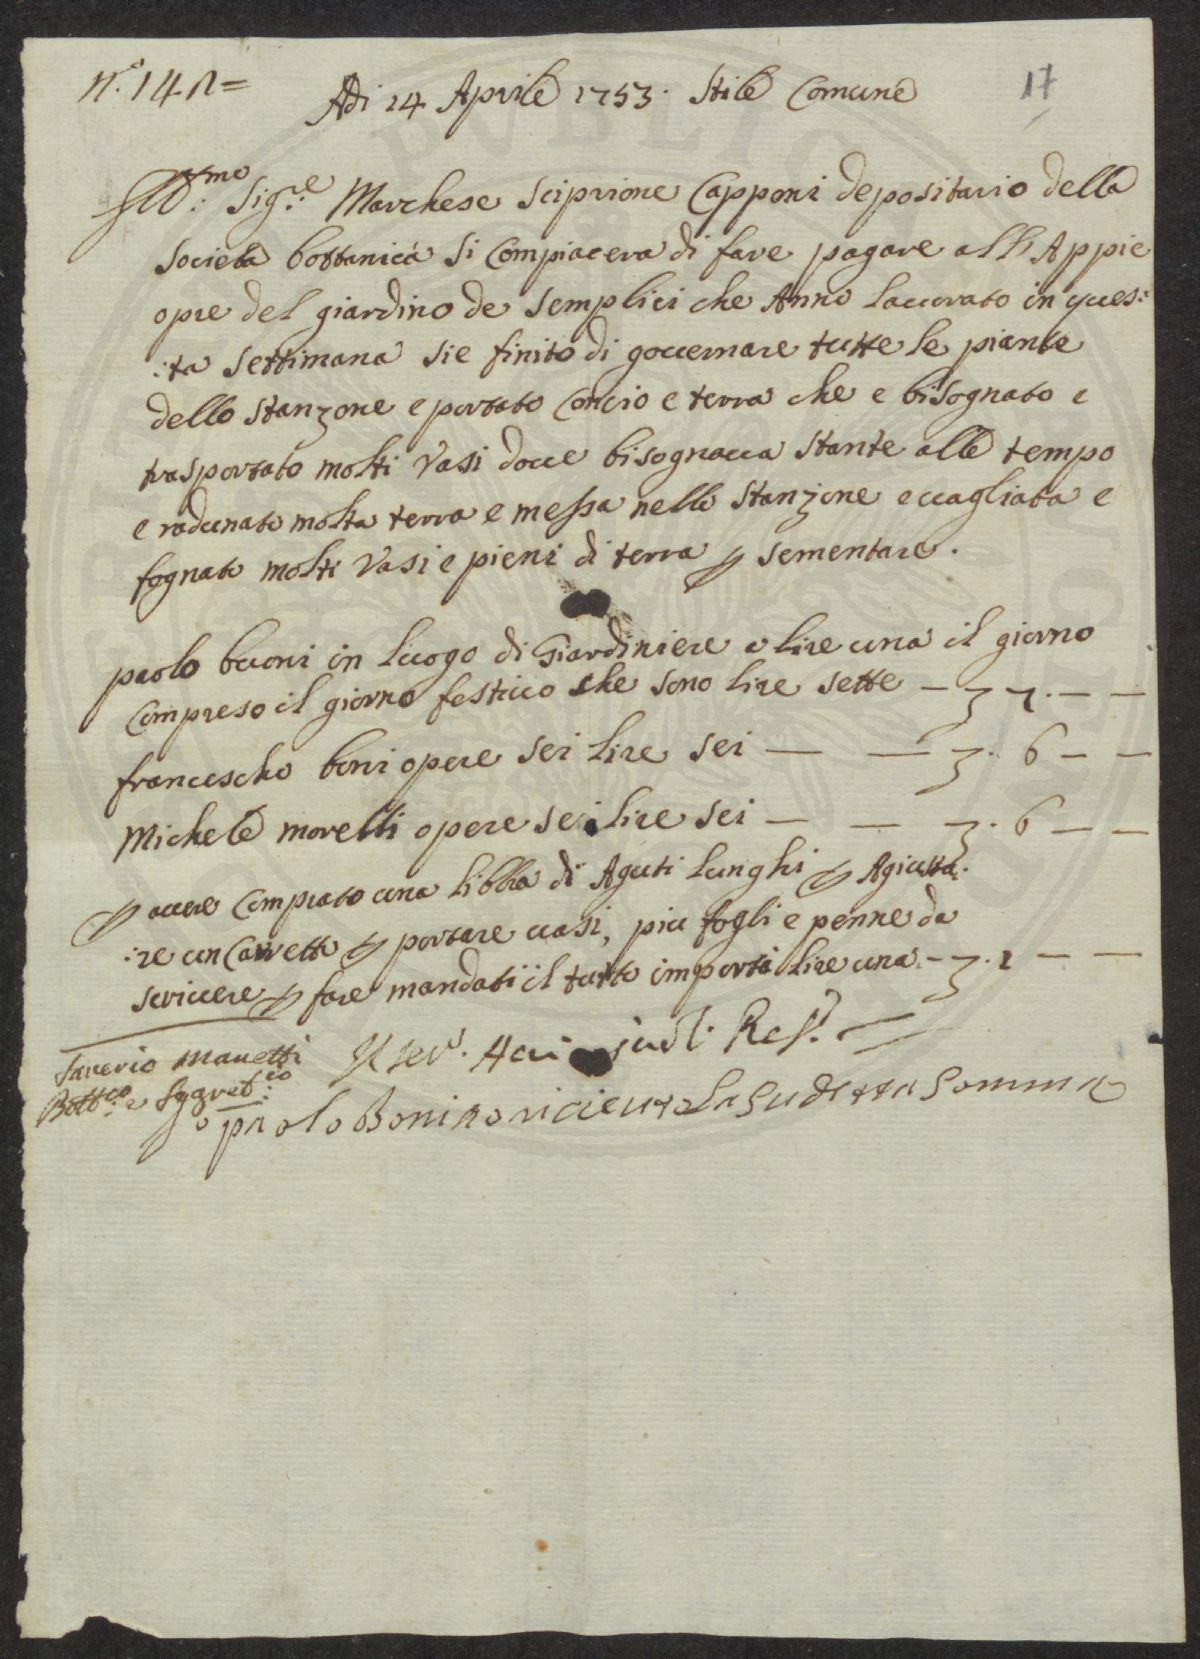 Adi 14 Aprile 1753. Stile Comune
17
Ill:mo Sig:re Marchese Sciprione Capponi depositario della
Societa bottanica Si Compiacera di fare pagare alli Appie
opre del giardino de Semplici che Anno lauorato in ques:
:ta Settimana sie finito di gouernare tutte le piante
dello Stanzone e portato Concio e terra che e bisognato e
trasportato molti Vasi doue bisognaua Stante alle tempo
e radunato molta terra e messa nello Stanzone e uagliata e
fognato molti Vasi e pieni di terra p sementare.
paolo buoni in luogo di Giardiniere a lire una il giorno
Compreso il giorno festiuo che sono lire sette — 7. — —
francescho boni opere sei lire sei — — 6 — —
Michele morelli opere sei lire sei — — 6 — —
p auere Comprato una libbra di Aguti lunghi p Agiusta:
:re un Carretto p portare uasi, piu fogli e penne da
scriuere p fare mandati il tutto importa lire una — 1 — —
Sauerio Manetti
Bott:co e Segret:rio
paolo Boni o riceuto La Sudetta Somma